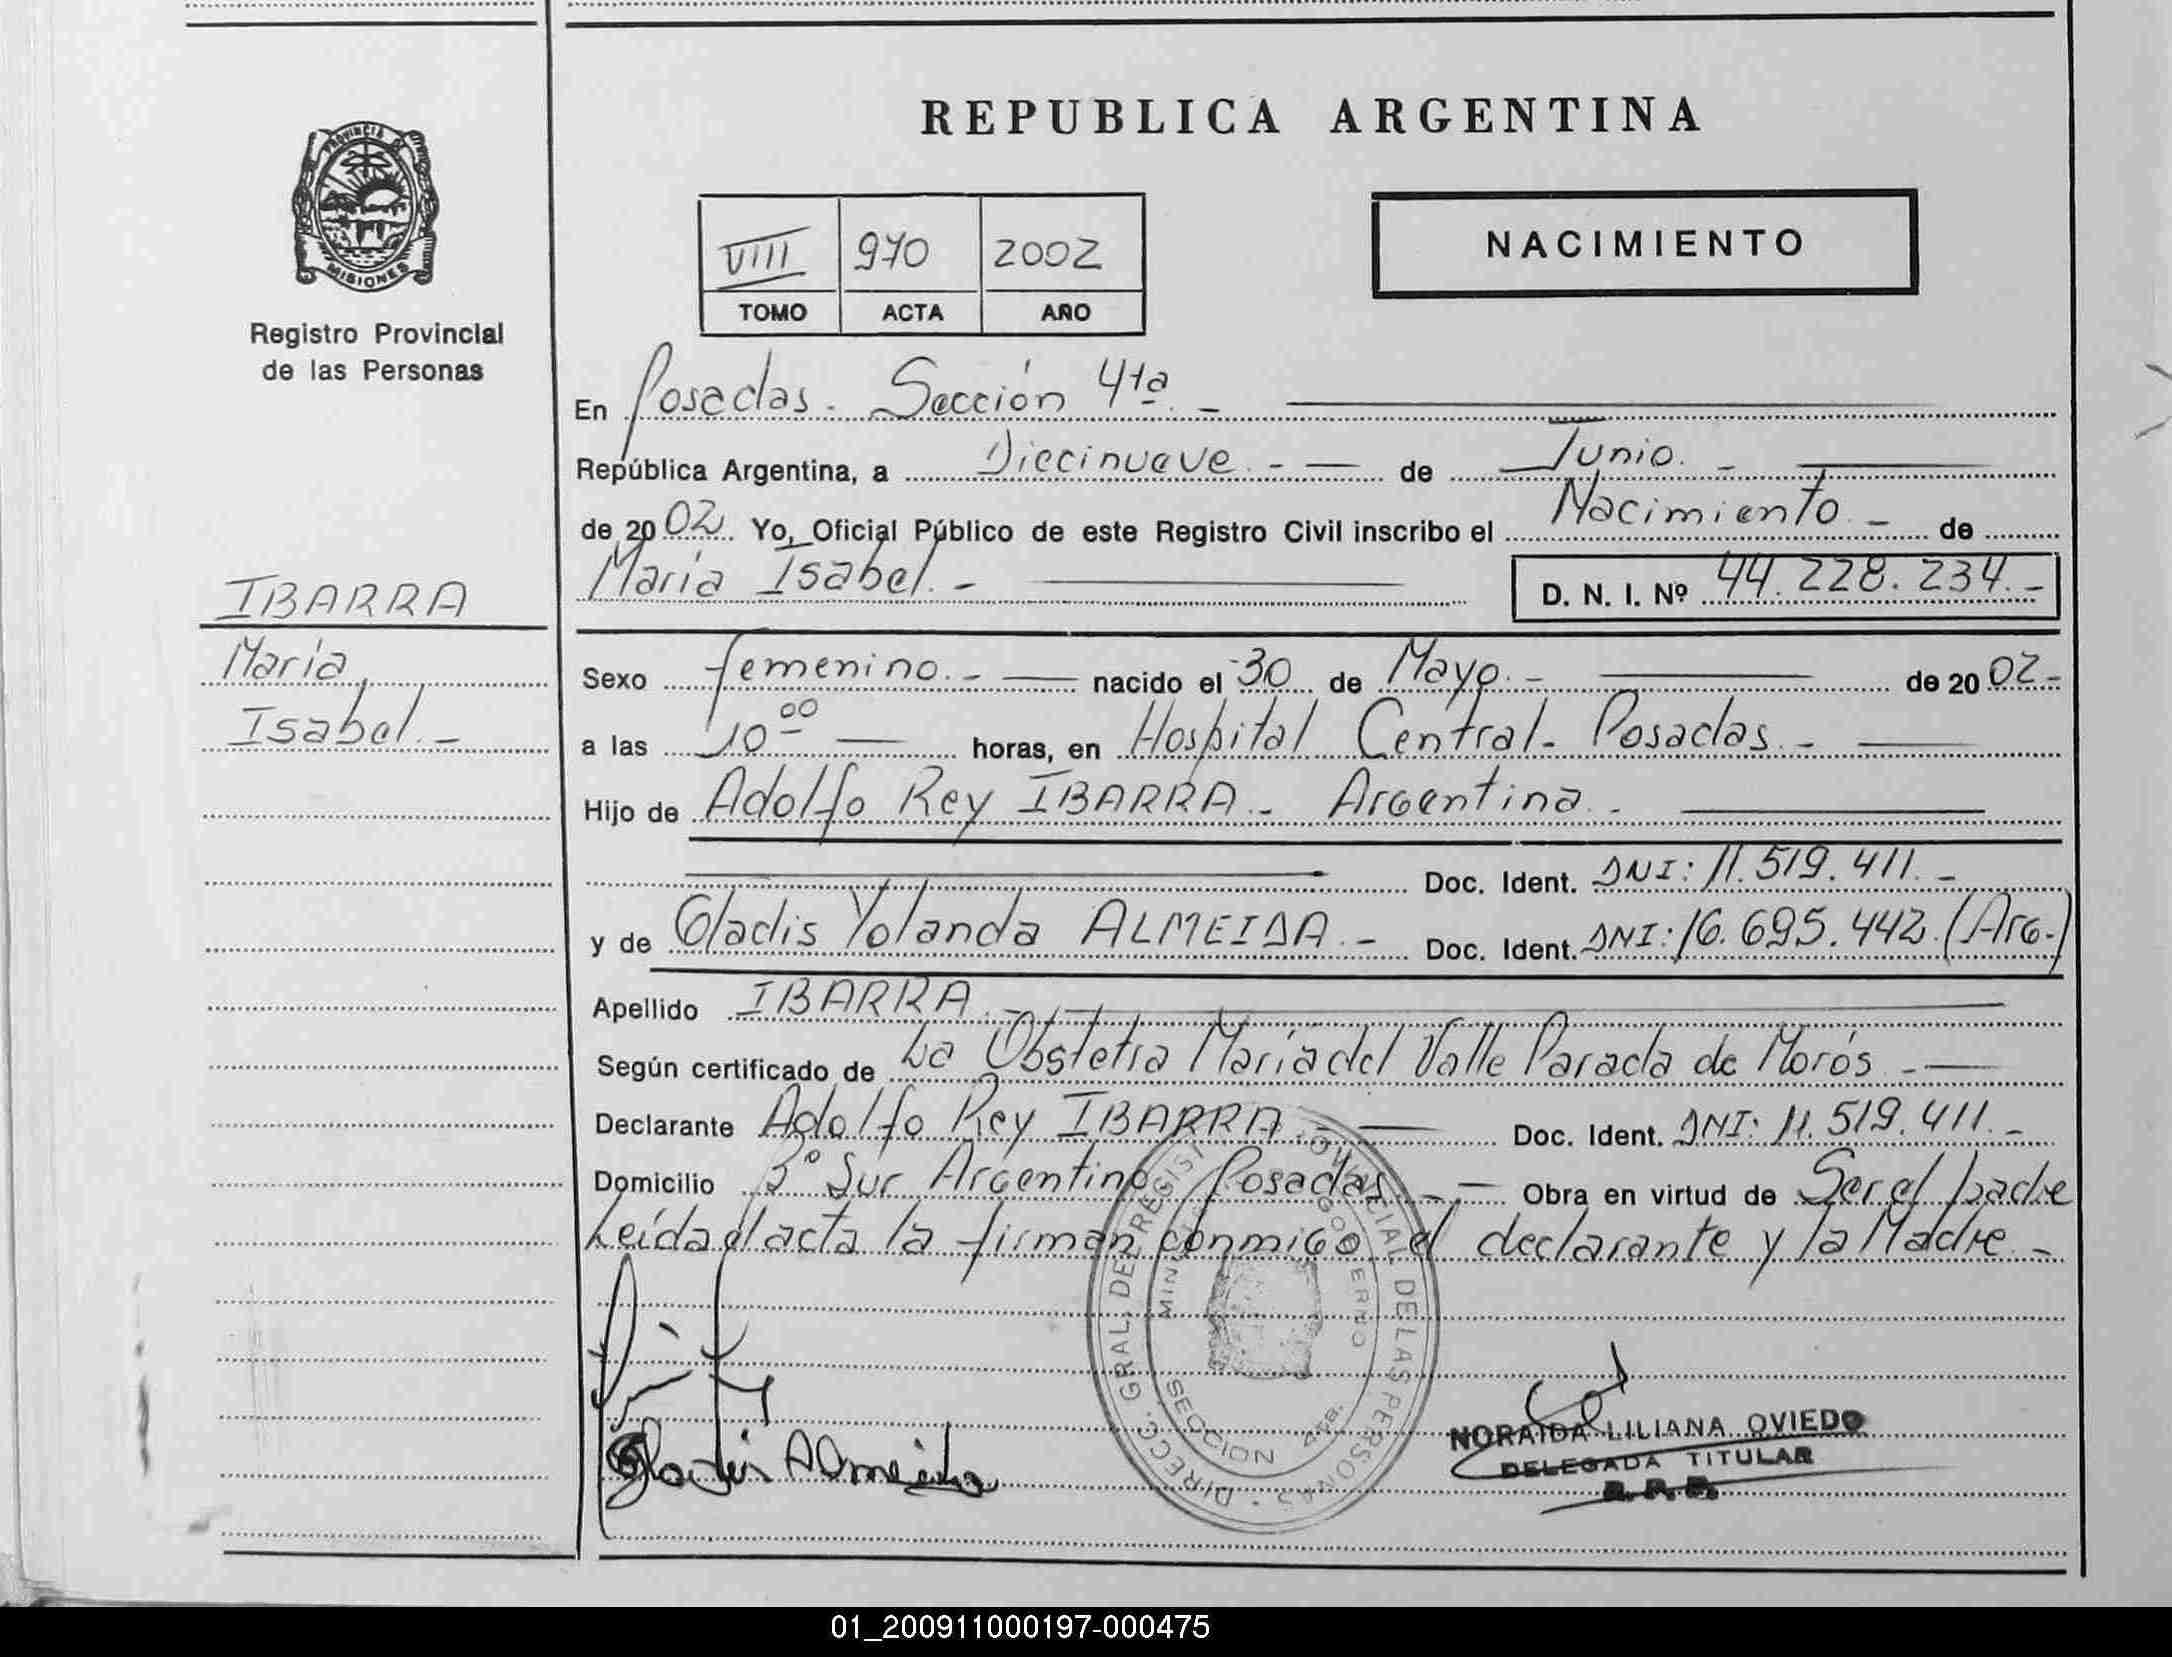 REPUBLICA ARGENTINA
PROVINCIA DE
MISIONES
Registro Provincial
de las Personas
VIII 970 2002
TOMO ACTA AÑO
NACIMIENTO
En Posadas. Sección 4ta. -
República Argentina, a Diecinueve. - de Junio. -
de 2002. Yo, Oficial Público de este Registro Civil inscribo el Nacimiento. - de
María Isabel. - D. N. I. Nº 44.228.234. -
IBARRA
María
Isabel. -
Sexo femenino. - nacido el 30 de Mayo. - de 2002 -
a las 10 00 horas, en Hospital Central - Posadas. -
Hijo de Adolfo Rey IBARRA - Argentina. -
Doc. Ident. DNI: 11.519.411. -
y de Gladis Yolanda ALMEIDA. - Doc. Ident. DNI: 16.695.442. (Arg.)
Apellido IBARRA. -
Según certificado de La Obstetra María del Valle Parada de Morós. -
Declarante Adolfo Rey IBARRA. - Doc. Ident. DNI: 11.519.411. -
Domicilio Bº Sur Argentino Posadas. - Obra en virtud de Ser el padre
Leída el acta la firman conmigo el declarante y la Madre. -
DIRECC. GRAL. DE REGISTRO PROVINCIAL DE LAS PERSONAS
GOBIERNO
SECCION 4ta.
Gladis Almeida
NORAIDA LILIANA OVIEDO
DELEGADA TITULAR
R. P. P.
01_200911000197-000475